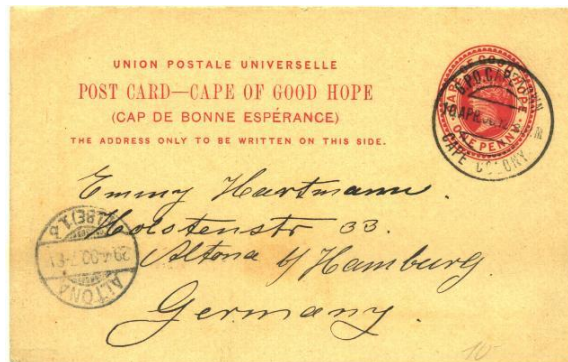 UNION POSTALE UNIVERSELLE
POST CARD—CAPE OF GOOD HOPE
(CAP DE BONNE ESPÉRANCE)
THE ADDRESS ONLY TO BE WRITTEN ON THIS SIDE.
CAPE OF GOOD HOPE
ONE PENNY
G.P.O. CAPE
10 APR
CAPE COLONY
Emmy Hartmann.
Holstenstr 33.
Altona b/ Hamburg.
Germany.
ALTONA
10